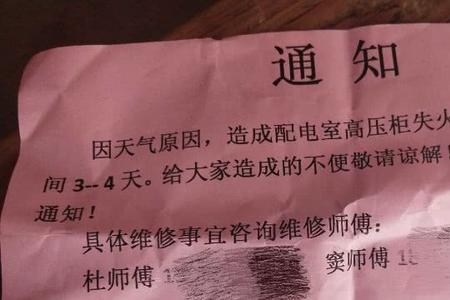 通知
因天气原因，造成配电室高压柜失火
间 3-- 4 天。给大家造成的不便敬请谅解！
通知！
具体维修事宜咨询维修师傅：
杜师傅 1 窦师傅 1